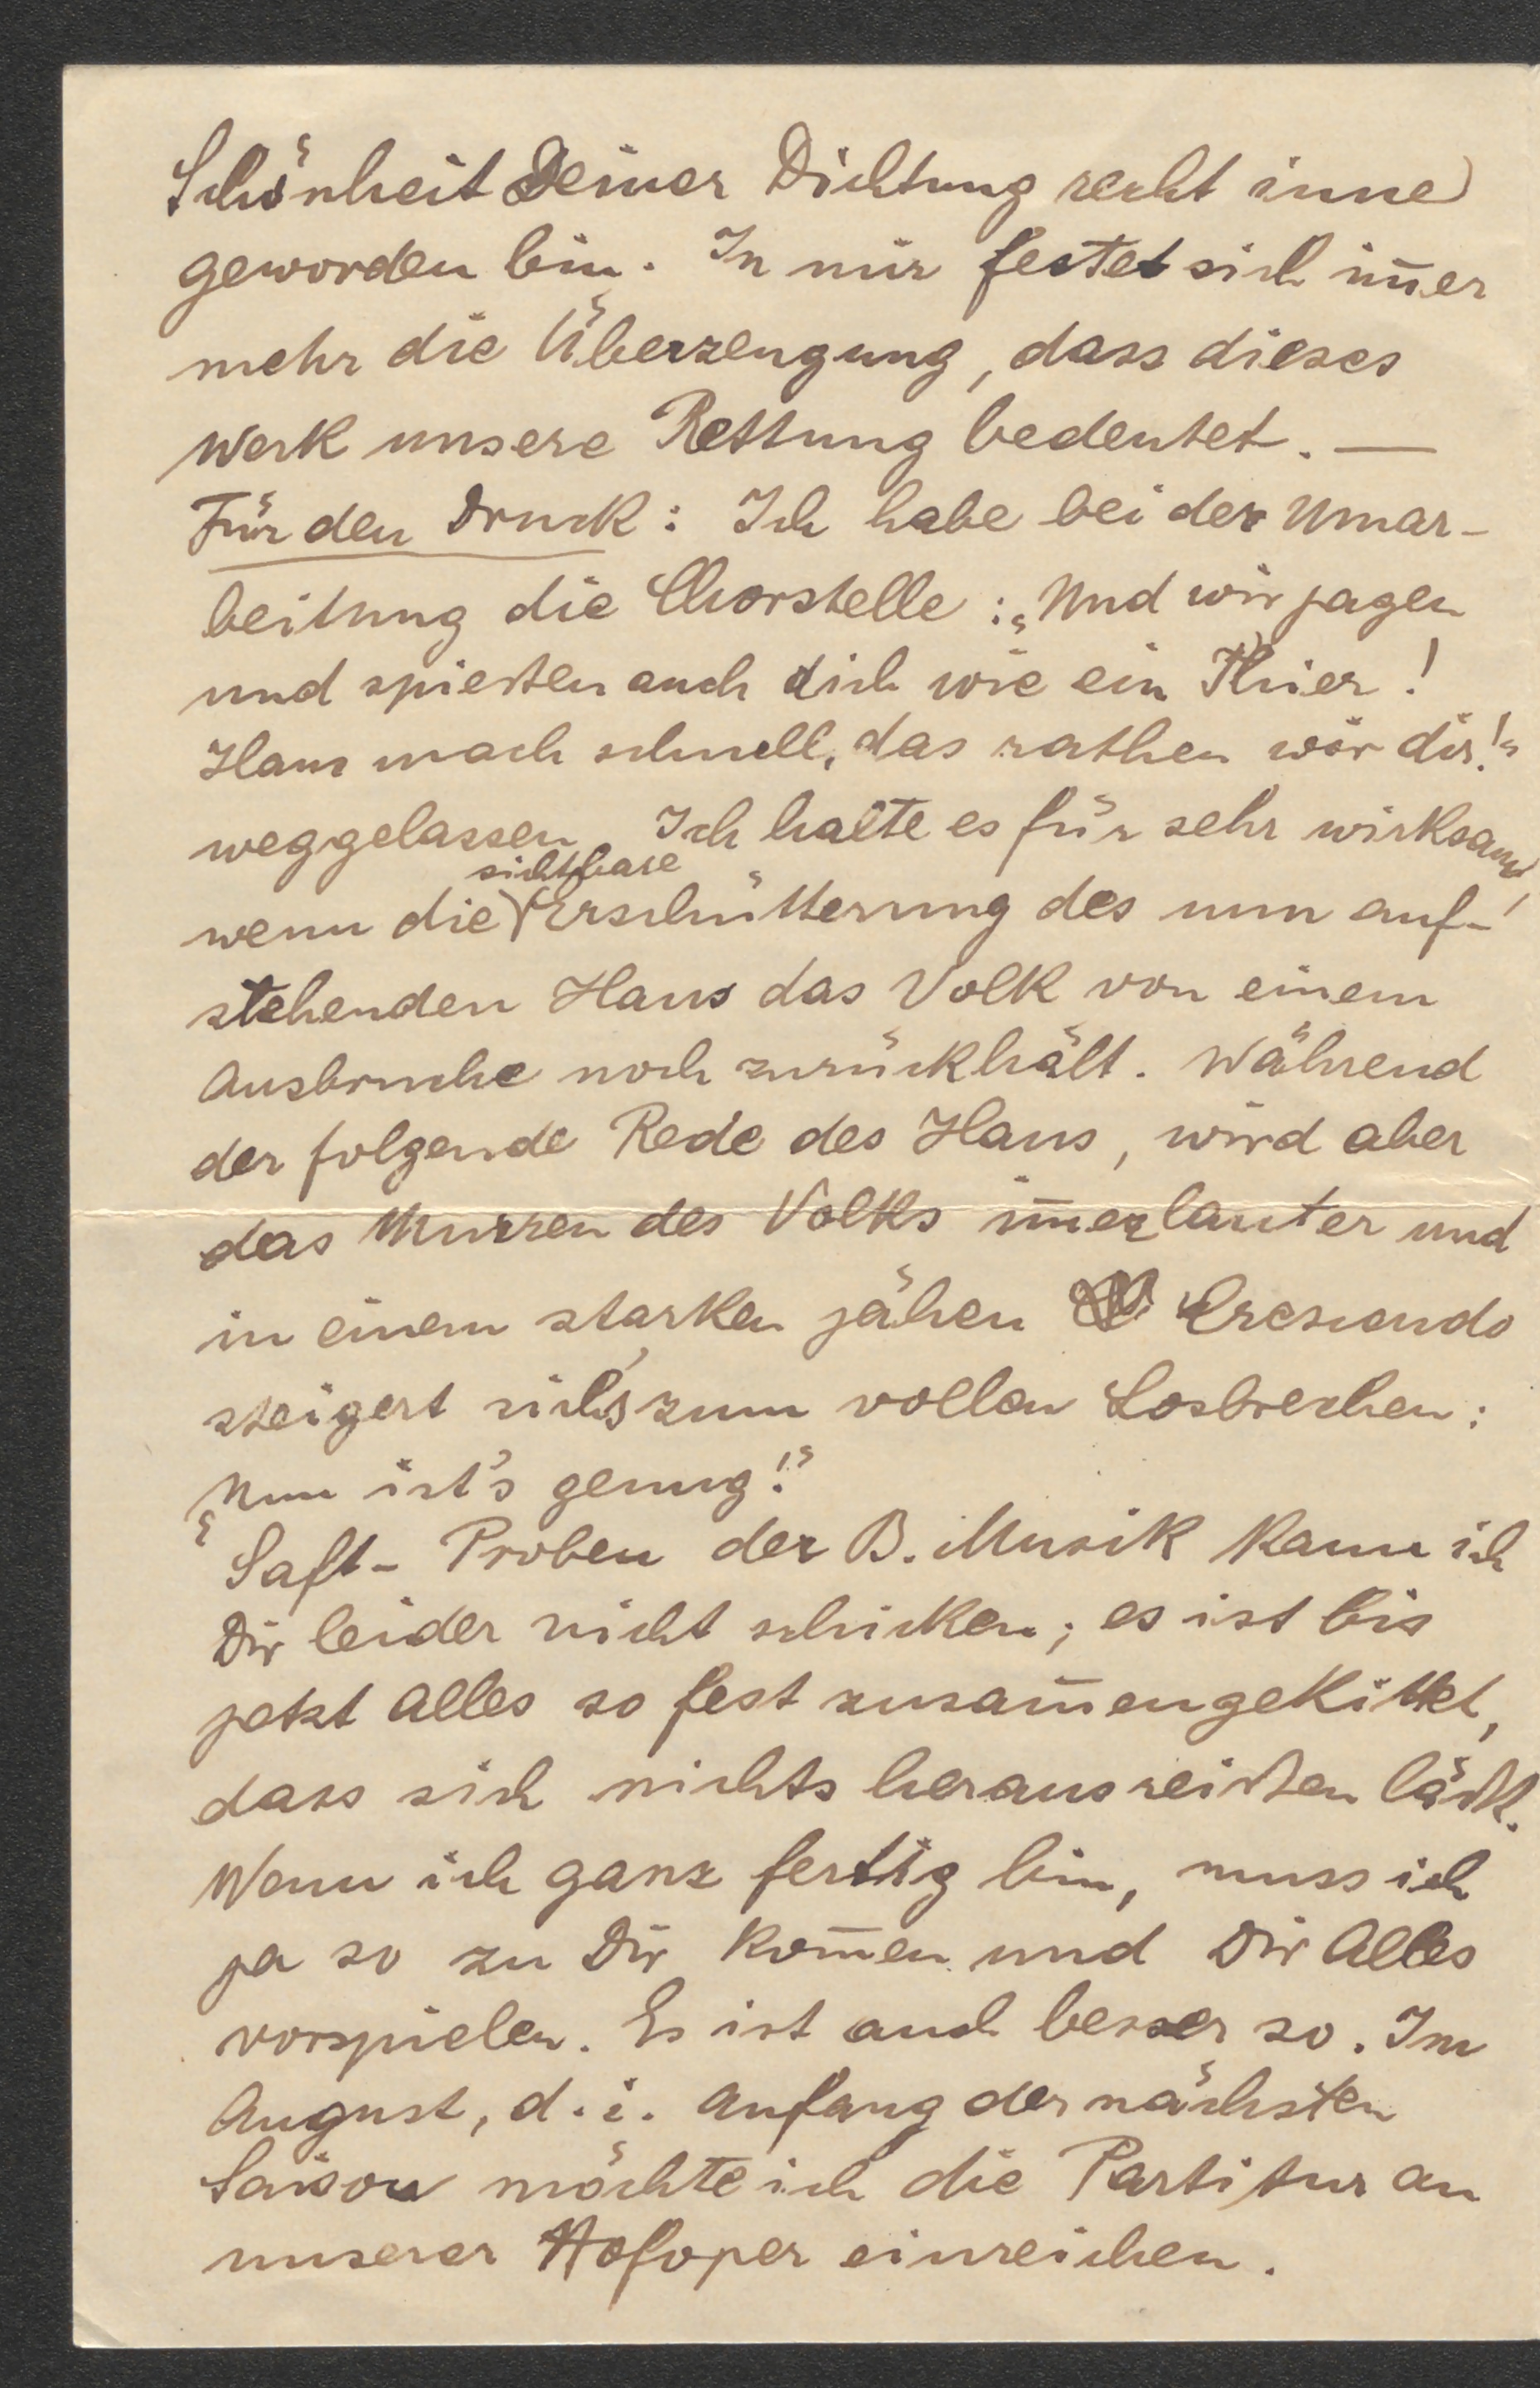 Schönheit Deiner Dichtung recht inne
geworden bin. In mir festet sich im̄er
mehr die Überzeugung, dass dieses
Werk unsere Rettung bedeutet. —
Für den Druck: Ich habe bei der Umar-
beitung die Chorstelle: „Und wir jagen
und spießen auch dich wie ein Thier!
Hans mach schnell, das rathen wir dir!“
weggelassen. Ich halte es für sehr wirksam,
sichtbare
wenn die Erschütterung des nun auf-
stehenden Hans das Volk von einem
Ausbruche noch zurückhält. Während
der folgende Rede des Hans, wird aber
das Murren des Volks im̄er lauter und
in einem starken jähen Crescendo
steigert sich's zum vollen Losbrechen:
„Nun ist's genug!“
Saft-Proben der B. Musik kann ich
Dir leider nicht schicken; es ist bis
jetzt Alles so fest zusam̄engekittet,
dass sich nichts herausreißen läßt.
Wenn ich ganz fertig bin, muss ich
ja so zu Dir kom̄en und Dir Alles
vorspielen. Es ist auch besser so. Im
August, d. i. Anfang der nächsten
Saison möchte ich die Partitur an
unserer Hofoper einreichen.